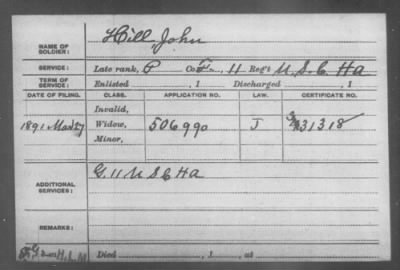 NAME OF SOLDIER: Hill, John
SERVICE: Late rank, P Co. F, 11 Reg't U.S.C. Ha
TERM OF SERVICE: Enlisted , 1 Discharged , 1
DATE OF FILING. CLASS. APPLICATION NO. LAW. CERTIFICATE NO.
Invalid,
1891 Mar 27 Widow, 506990 J 331318
Minor,
ADDITIONAL SERVICES: G. 11 U S C Ha
REMARKS:
Died , 1 , at